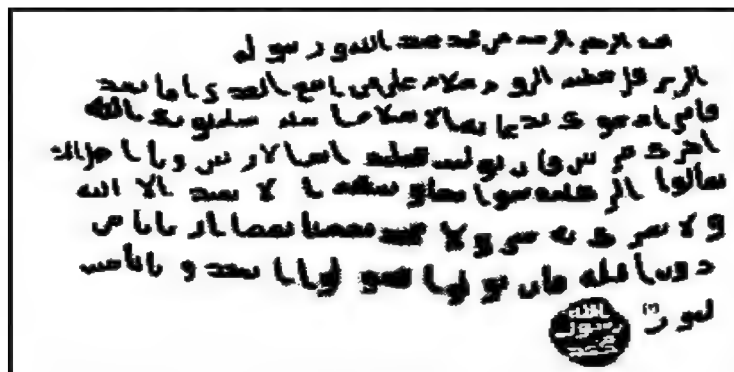 الرحمن الرحيم من محمد عبد الله و رسوله
الى هرقل عظيم الروم سلام على من اتبع الهدى اما بعد
فانى ادعوك بدعاية الاسلام اسلم تسلم يوتك الله
اجرك مرتين فان توليت فعليك اثم الاريسين ويا اهل الك
تعالوا الى كلمة سوا بيننا وبينكم ا لا نعبد الا الله
ولا نشرك به شيا ولا يتخذ بعضنا بعضا اربابا من
دون الله فان تولوا فقولوا اشهدوا بانا مس
لمون
الله
رسول
محمد